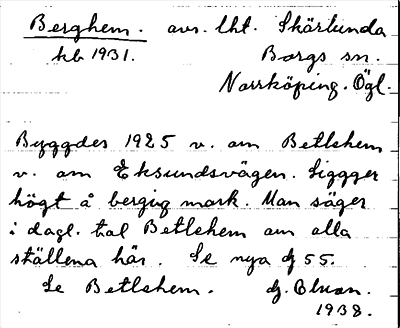 Berghem. avs. lht. Skärlunda
kb 1931. Borgs sn.
Norrköping. Ögl.
Byggdes 1925 v. om Betlehem
v. om Eksundsvägen. Ligger
högt å bergig mark. Man säger
i dagl. tal Betlehem om alla
ställena här. Se nya 55.
Se Betlehem.
1938.